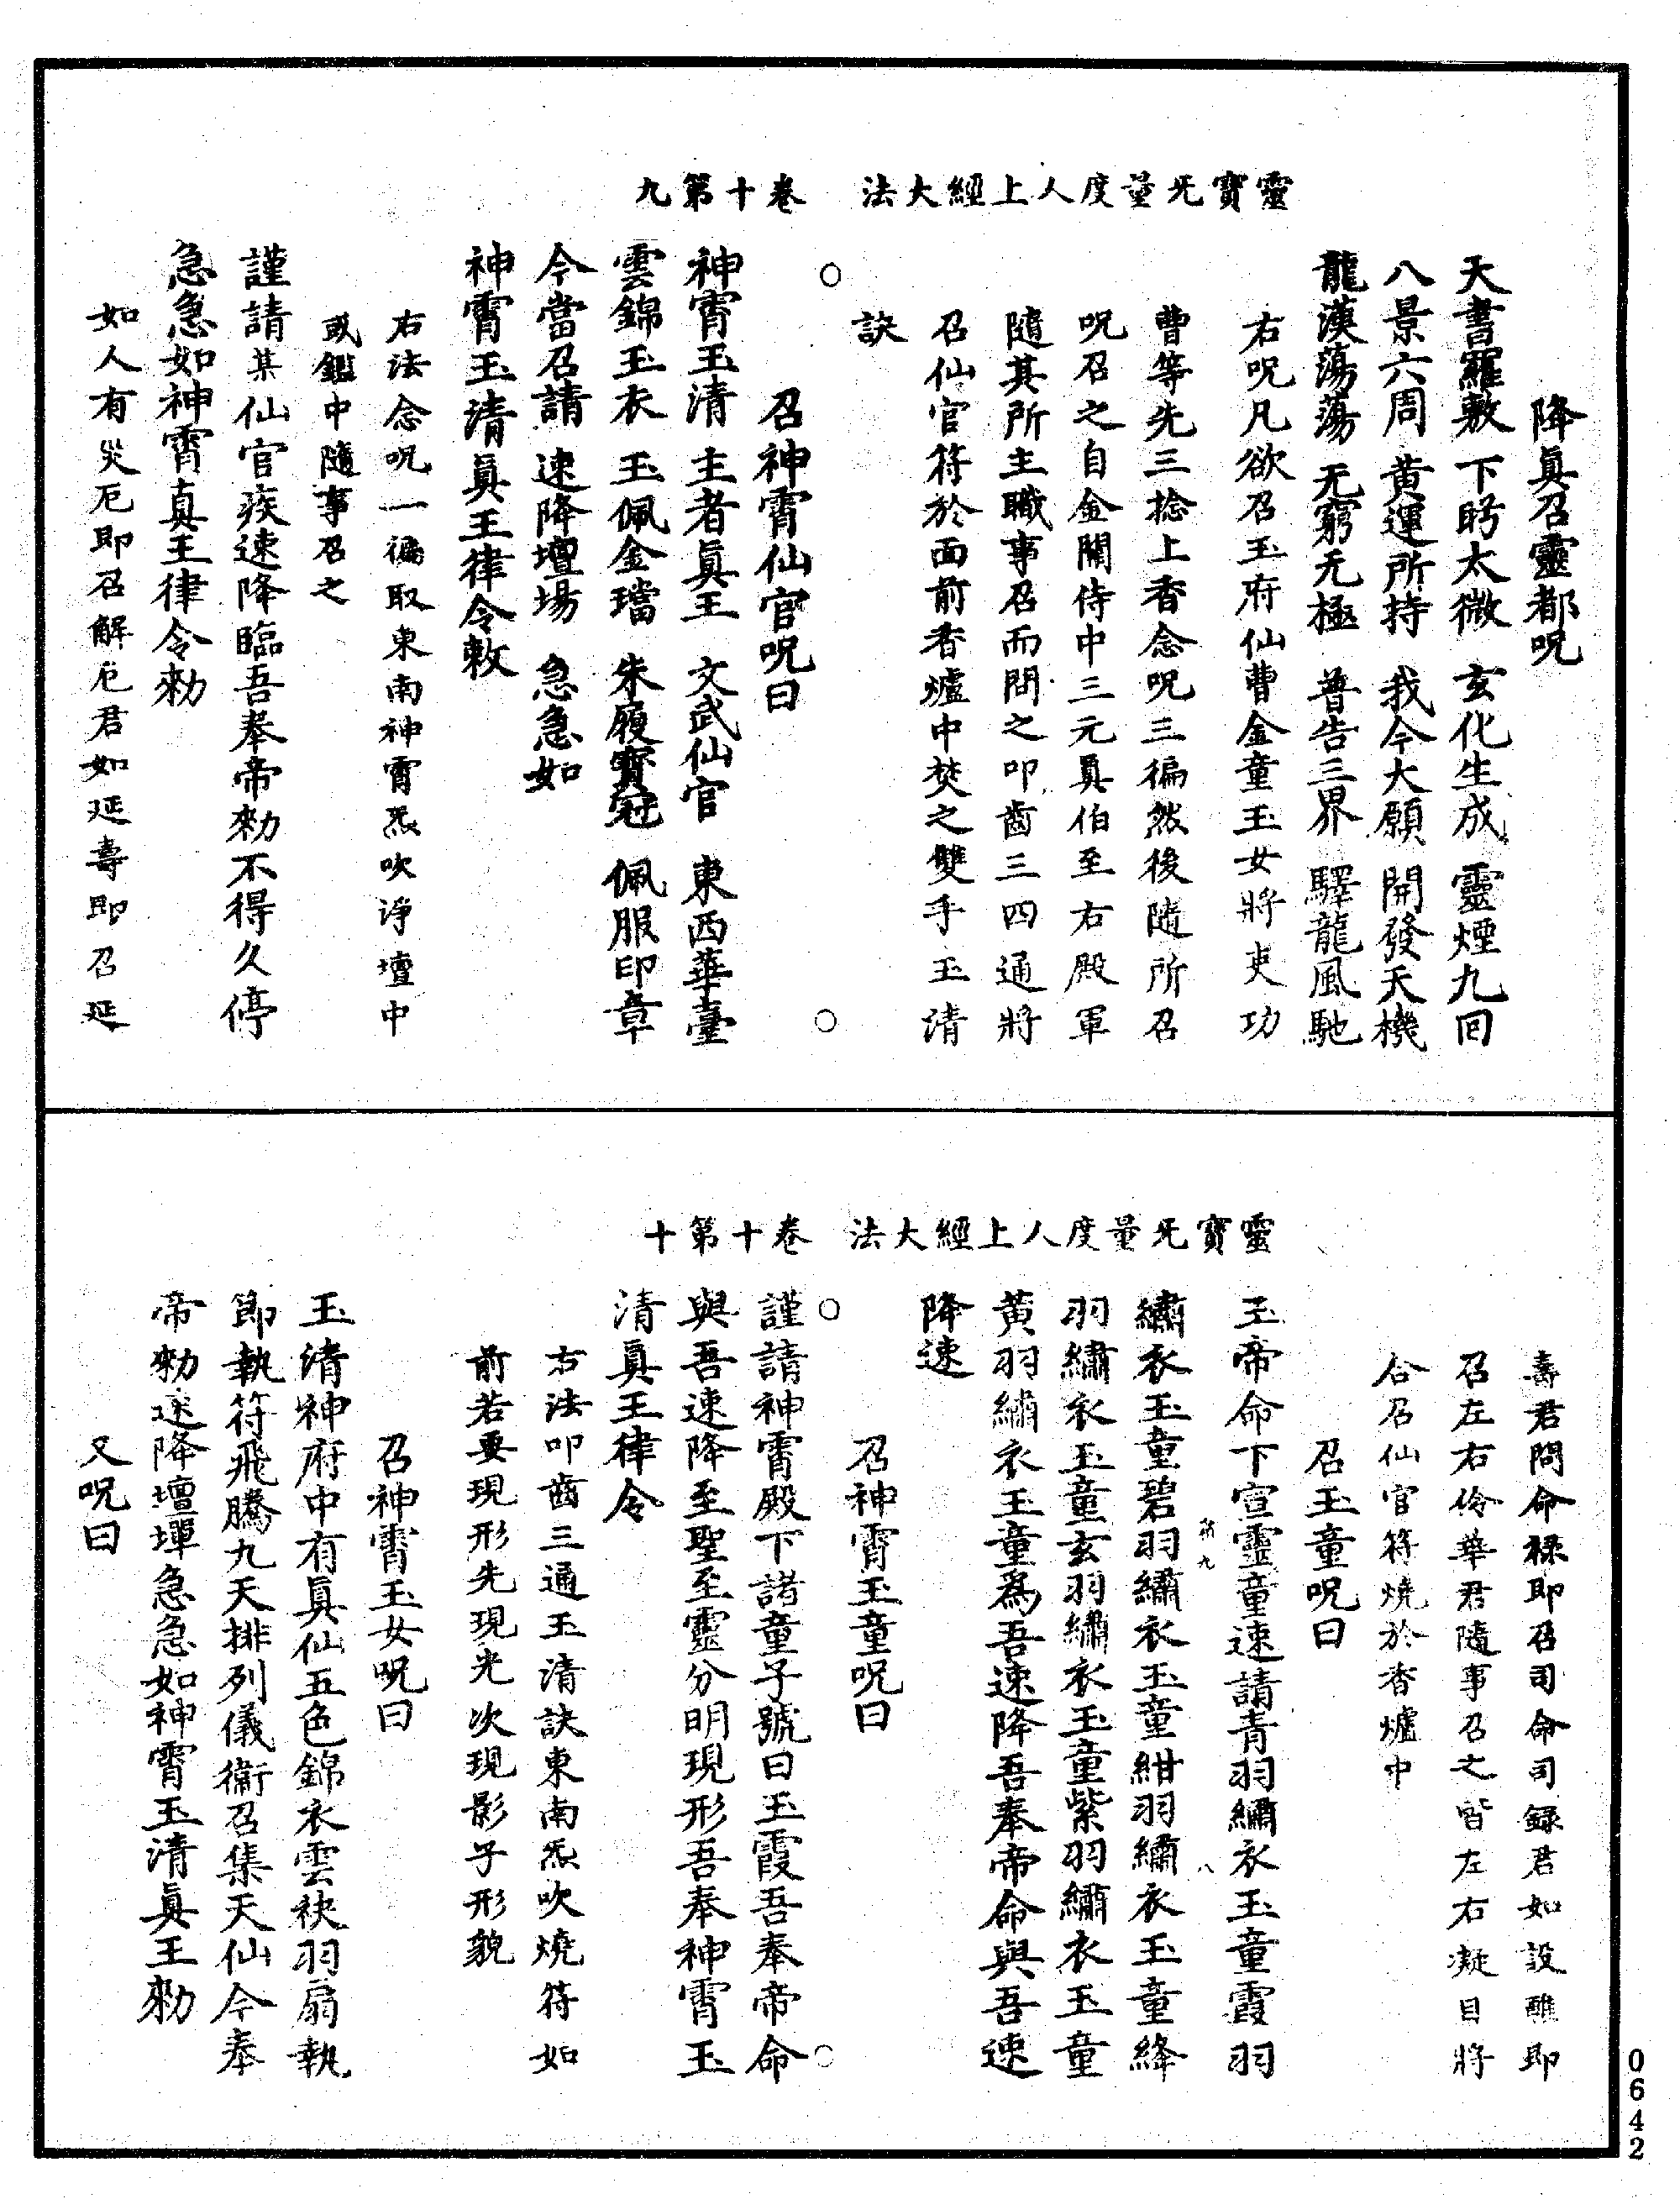 靈寶旡量度人上經大法　卷十第九
降眞召靈都呪
天書羅敷　下眄太微　玄化生成　靈煙九回
八景六周　黃運所持　我今大願　開發天機
龍漢蕩蕩　无窮无極　普告三界　驛龍風馳
右呪凡欲召玉府仙曹金童玉女將吏功
曹等先三捻上香念呪三徧然後隨所召
呪召之自金闕侍中三元眞伯至右殿軍
隨其所主職事召而問之叩齒三四通將
召仙官符於面前香爐中焚之雙手玉清
訣
召神霄仙官呪曰
神霄玉清　主者眞王　文武仙官　東西華臺
雲錦玉衣　玉佩金璫　朱履寶冠　佩服印章
今當召請　速降壇場　急急如
神霄玉清眞王律令敕
右法念呪一徧取東南神霄炁吹淨壇中
或鑑中隨事召之
謹請某仙官疾速降臨吾奉帝勑不得久停
急急如神霄真王律令勑
如人有災厄即召解厄君如延壽即召延
靈寶旡量度人上經大法　卷十第十
壽君問命祿即召司命司錄君如設醮即
召左右伶華君隨事召之皆左右凝目將
合召仙官符燒於香爐中
召玉童呪曰
玉帝命下宣靈童速請青羽繡衣玉童霞羽
繡衣玉童碧羽繡衣玉童紺羽繡衣玉童絳
羽繡衣玉童玄羽繡衣玉童紫羽繡衣玉童
黃羽繡衣玉童爲吾速降吾奉帝命與吾速
降速
召神霄玉童呪曰
謹請神霄殿下諸童子號曰玉霞吾奉帝命
與吾速降至聖至靈分明現形吾奉神霄玉
清眞王律令
右法叩齒三通玉清訣東南炁吹燒符如
前若要現形先現光次現影子形貌
召神霄玉女呪曰
玉清神府中有眞仙五色錦衣雲袂羽扇執
節執符飛騰九天排列儀衞召集天仙今奉
帝勑速降壇墠急急如神霄玉清眞王勑
又呪曰
0642